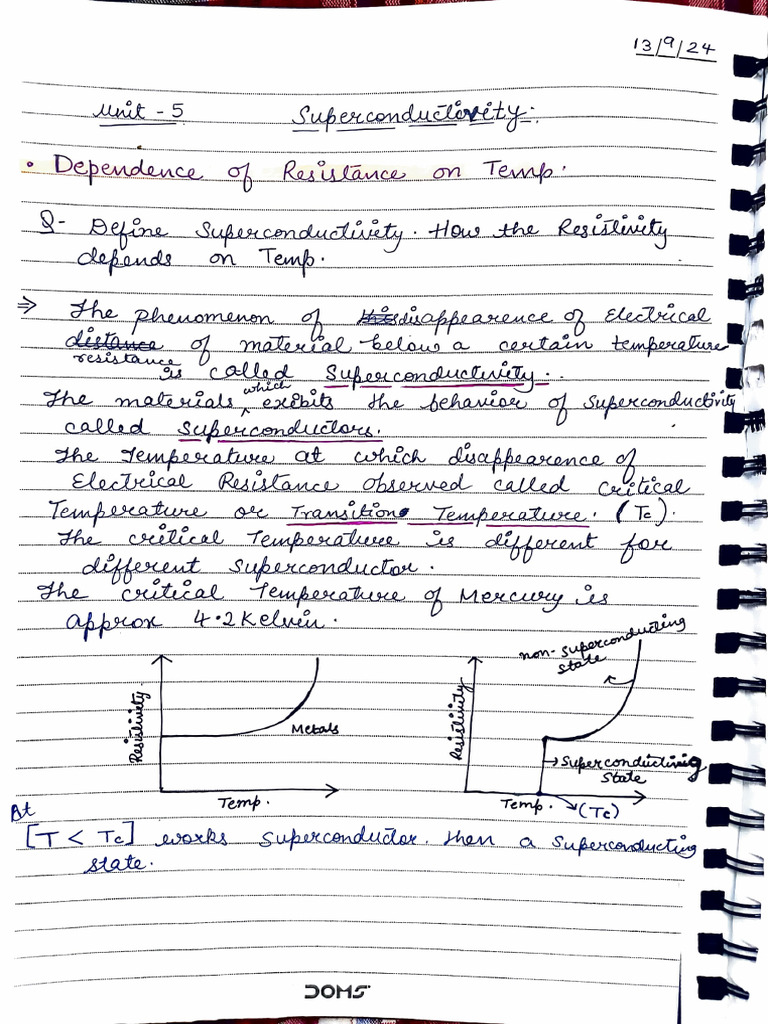 13/9/24
Unit - 5 Superconductivity.
• Dependence of Resistance on Temp.
Q- Define Superconductivity. How the Resistivity
depends on Temp.
⇒ The phenomenon of disappearence of Electrical
distance of material below a certain temperature
resistance
is called Superconductivity..
which
The materials ^ exibits the behavior of superconductivity
called Superconductors.
The Temperature at which disappearence of
Electrical Resistance observed called critical
Temperature or Transition Temperature. (Tc).
The critical Temperature is different for
different superconductor.
The critical Temperature of Mercury is
approx 4.2 Kelvin.
Resistivity.
Metals
Temp.
non-superconducting
state
Resistivity
→ Superconducting
State
Temp. (Tc)
At
[T < Tc] works superconductor. then a superconducting
state.
DOMS